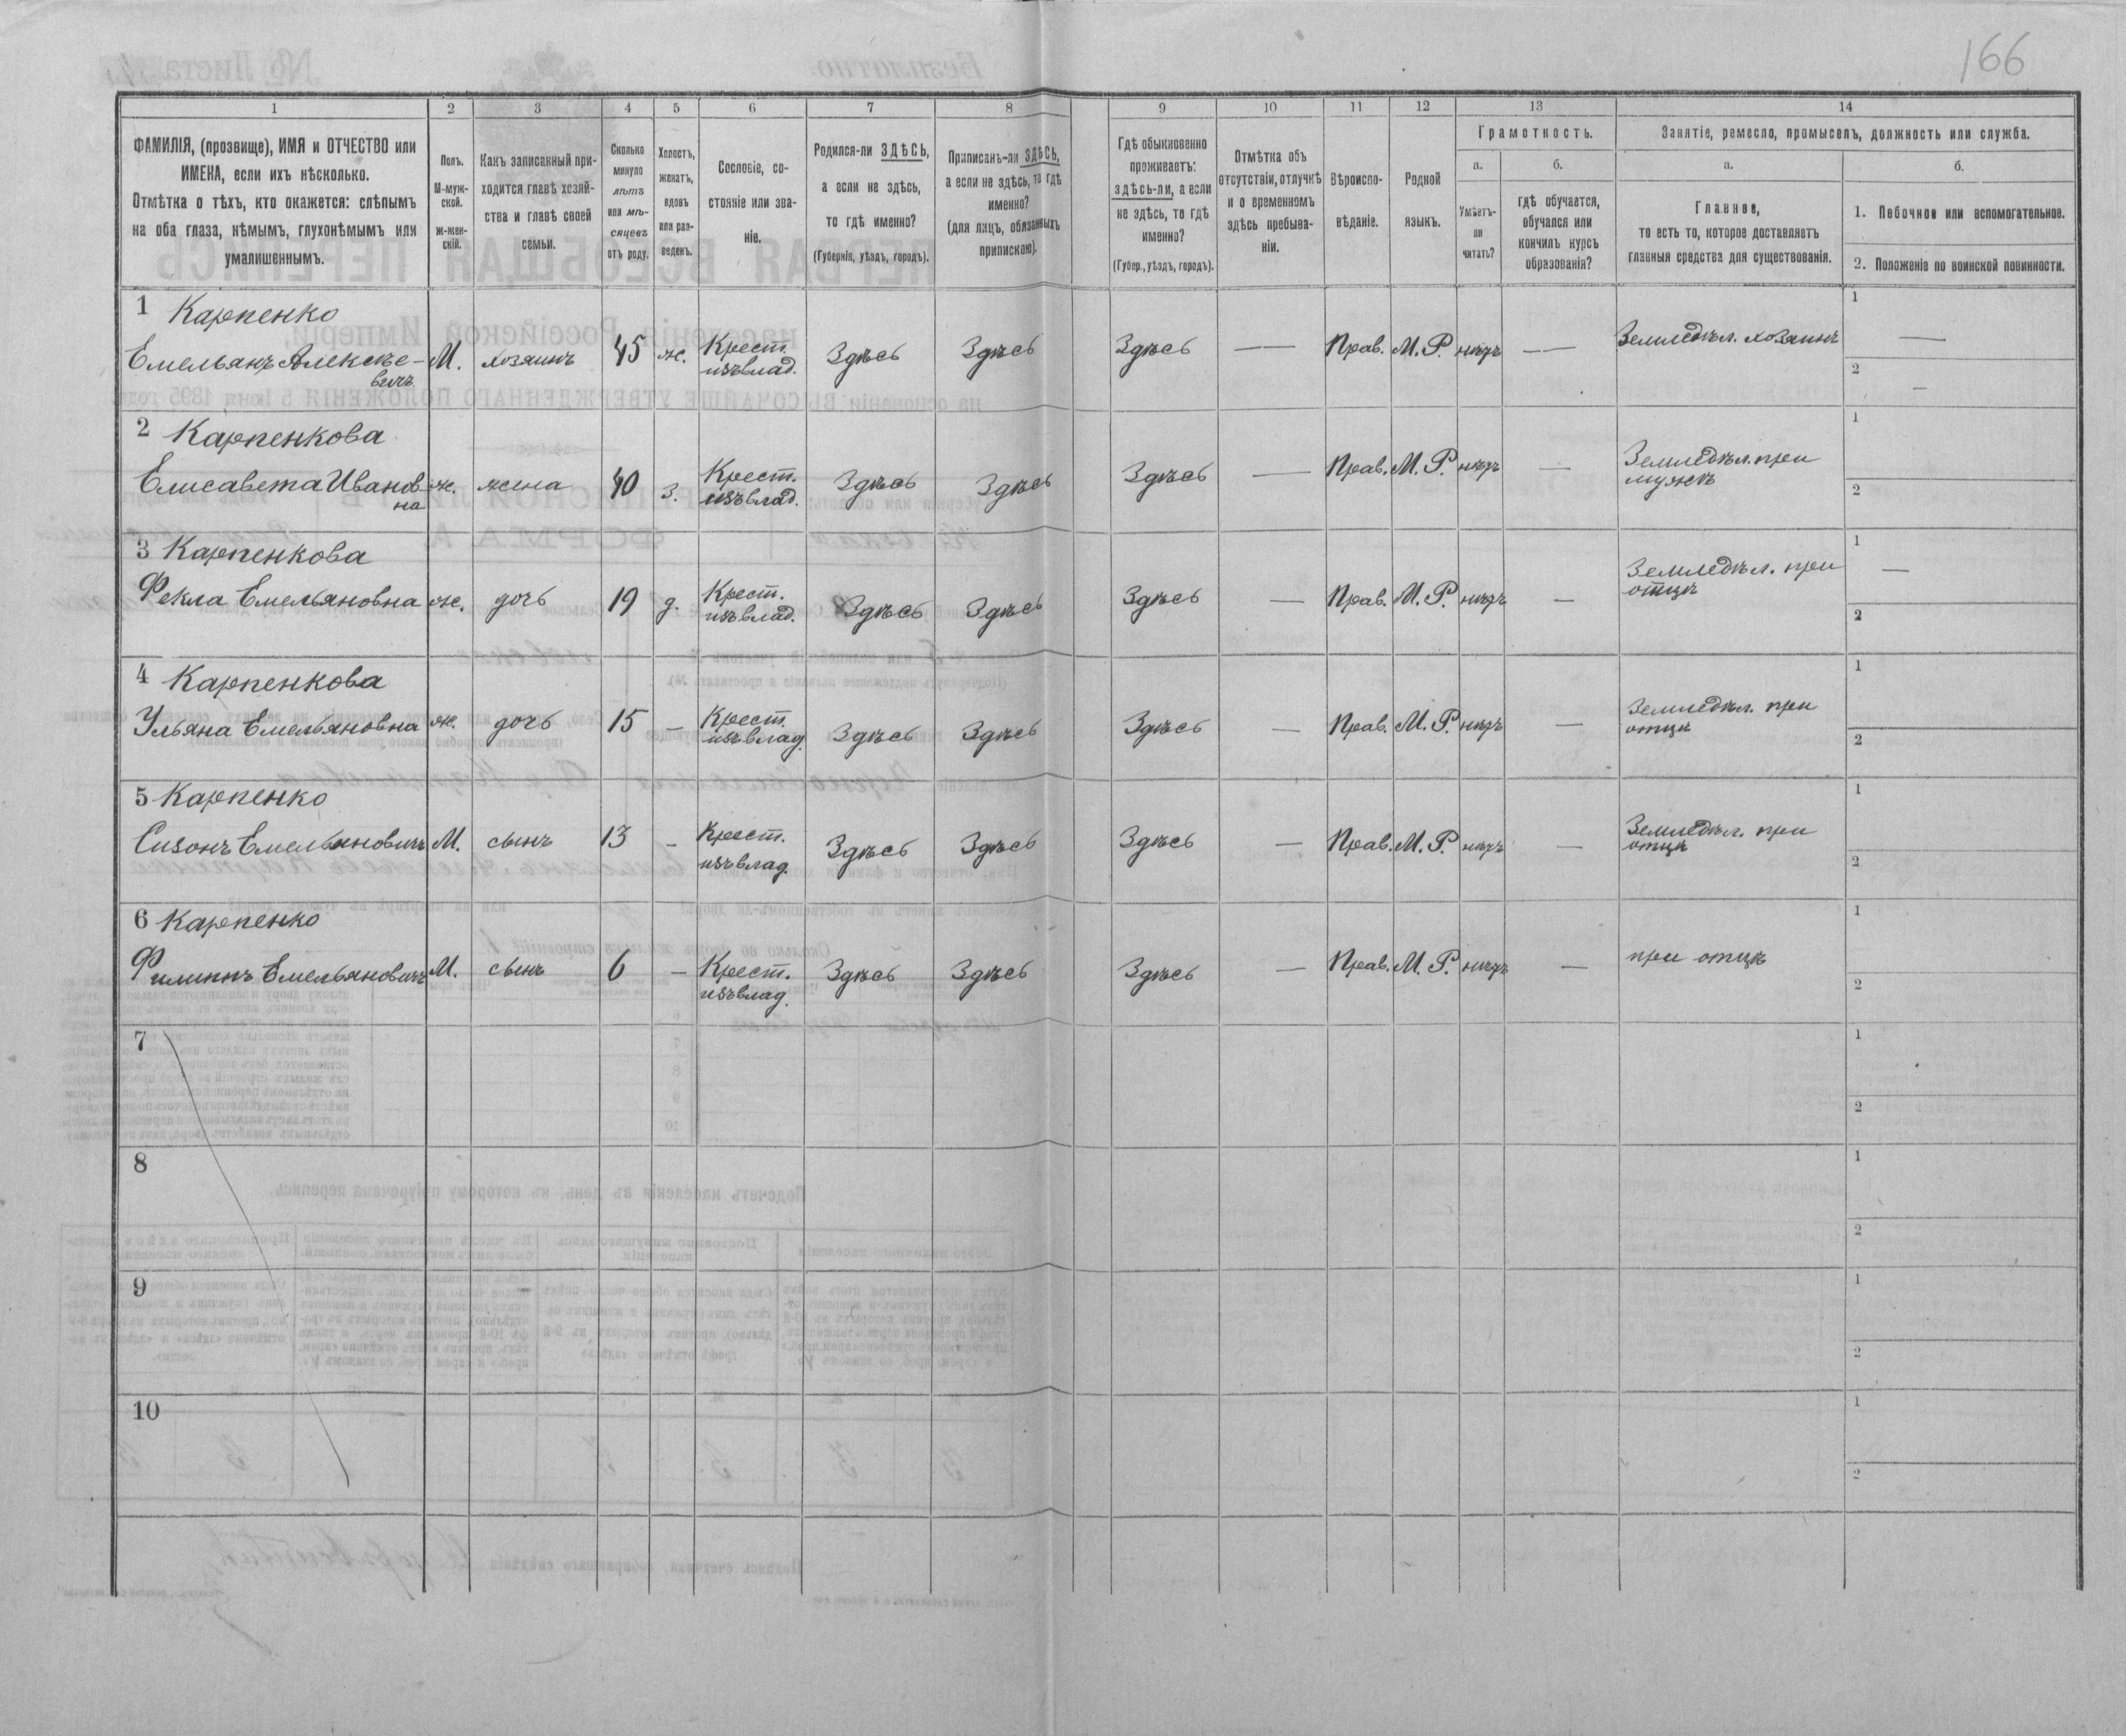 166
1 2 3 4 5 6 7 8 9 10 11 12 13 14
ФАМИЛІЯ, (прозвище), ИМЯ и ОТЧЕСТВО или
ИМЕНА, если ихъ нѣсколько.
Отмѣтка о тѣхъ, кто окажется: слѣпымъ
на оба глаза, нѣмымъ, глухонѣмымъ или
умалишеннымъ.
Полъ.
М-муж-
ской.
ж-жен-
скій.
Какъ записанный при-
ходится главѣ хозяй-
ства и главѣ своей
семьи.
Сколько
минуло
лѣтъ
или мѣ-
сяцевъ
отъ роду.
Холостъ,
женатъ,
вдовъ
или раз-
веденъ.
Сословіе, со-
стояніе или зва-
ніе.
Родился-ли ЗДѢСЬ,
а если не здѣсь,
то гдѣ именно?
(Губернія, уѣздъ, городъ).
Приписанъ-ли ЗДѢСЬ,
а если не здѣсь, то гдѣ
именно?
(для лицъ, обязанныхъ
припискою).
Гдѣ обыкновенно
проживаетъ:
здѣсь-ли, а если
не здѣсь, то гдѣ
именно?
(Губер., уѣздъ, городъ).
Отмѣтка объ
отсутствіи, отлучкѣ
и о временномъ
здѣсь пребыва-
ніи.
Вѣроиспо-
вѣданіе.
Родной
языкъ.
Грамотность.
а.
Умѣетъ-
ли
читать?
б.
гдѣ обучается,
обучался или
кончилъ курсъ
образованія?
Занятіе, ремесло, промыселъ, должность или служба.
а.
Главное,
то есть то, которое доставляетъ
главныя средства для существованія.
б.
1. Побочное или вспомогательное.
2. Положеніе по воинской повинности.
1 Карпенко
Емельянъ Алексѣе-
вичъ
М. хозяинъ 45 ж. Крест.
изъ влад.
Здѣсь Здѣсь Здѣсь — Прав. М. Р. нѣтъ — Земледѣл. хозяинъ
1 —
2 —
2 Карпенкова
Елисавета Иванов-
на
ж. жена 40 з. Крест.
изъ влад.
Здѣсь Здѣсь Здѣсь — Прав. М. Р. нѣтъ — Земледѣл. при
мужѣ
1
2
3 Карпенкова
Фекла Емельяновна ж. дочь 19 д. Крест.
изъ влад.
Здѣсь Здѣсь Здѣсь — Прав. М. Р. нѣтъ — Земледѣл. при
отцѣ
1 —
2
4 Карпенкова
Ульяна Емельяновна ж. дочь 15 — Крест.
изъ влад.
Здѣсь Здѣсь Здѣсь — Прав. М. Р. нѣтъ — Земледѣл. при
отцѣ
1
2
5 Карпенко
Сизонъ Емельяновичъ М. сынъ 13 — Крест.
изъ влад.
Здѣсь Здѣсь Здѣсь — Прав. М. Р. нѣтъ — Земледѣл. при
отцѣ
1
2
6 Карпенко
Филиппъ Емельяновичъ М. сынъ 6 — Крест.
изъ влад.
Здѣсь Здѣсь Здѣсь — Прав. М. Р. нѣтъ — при отцѣ
1
2
7
1
2
8
1
2
9
1
2
10
1
2